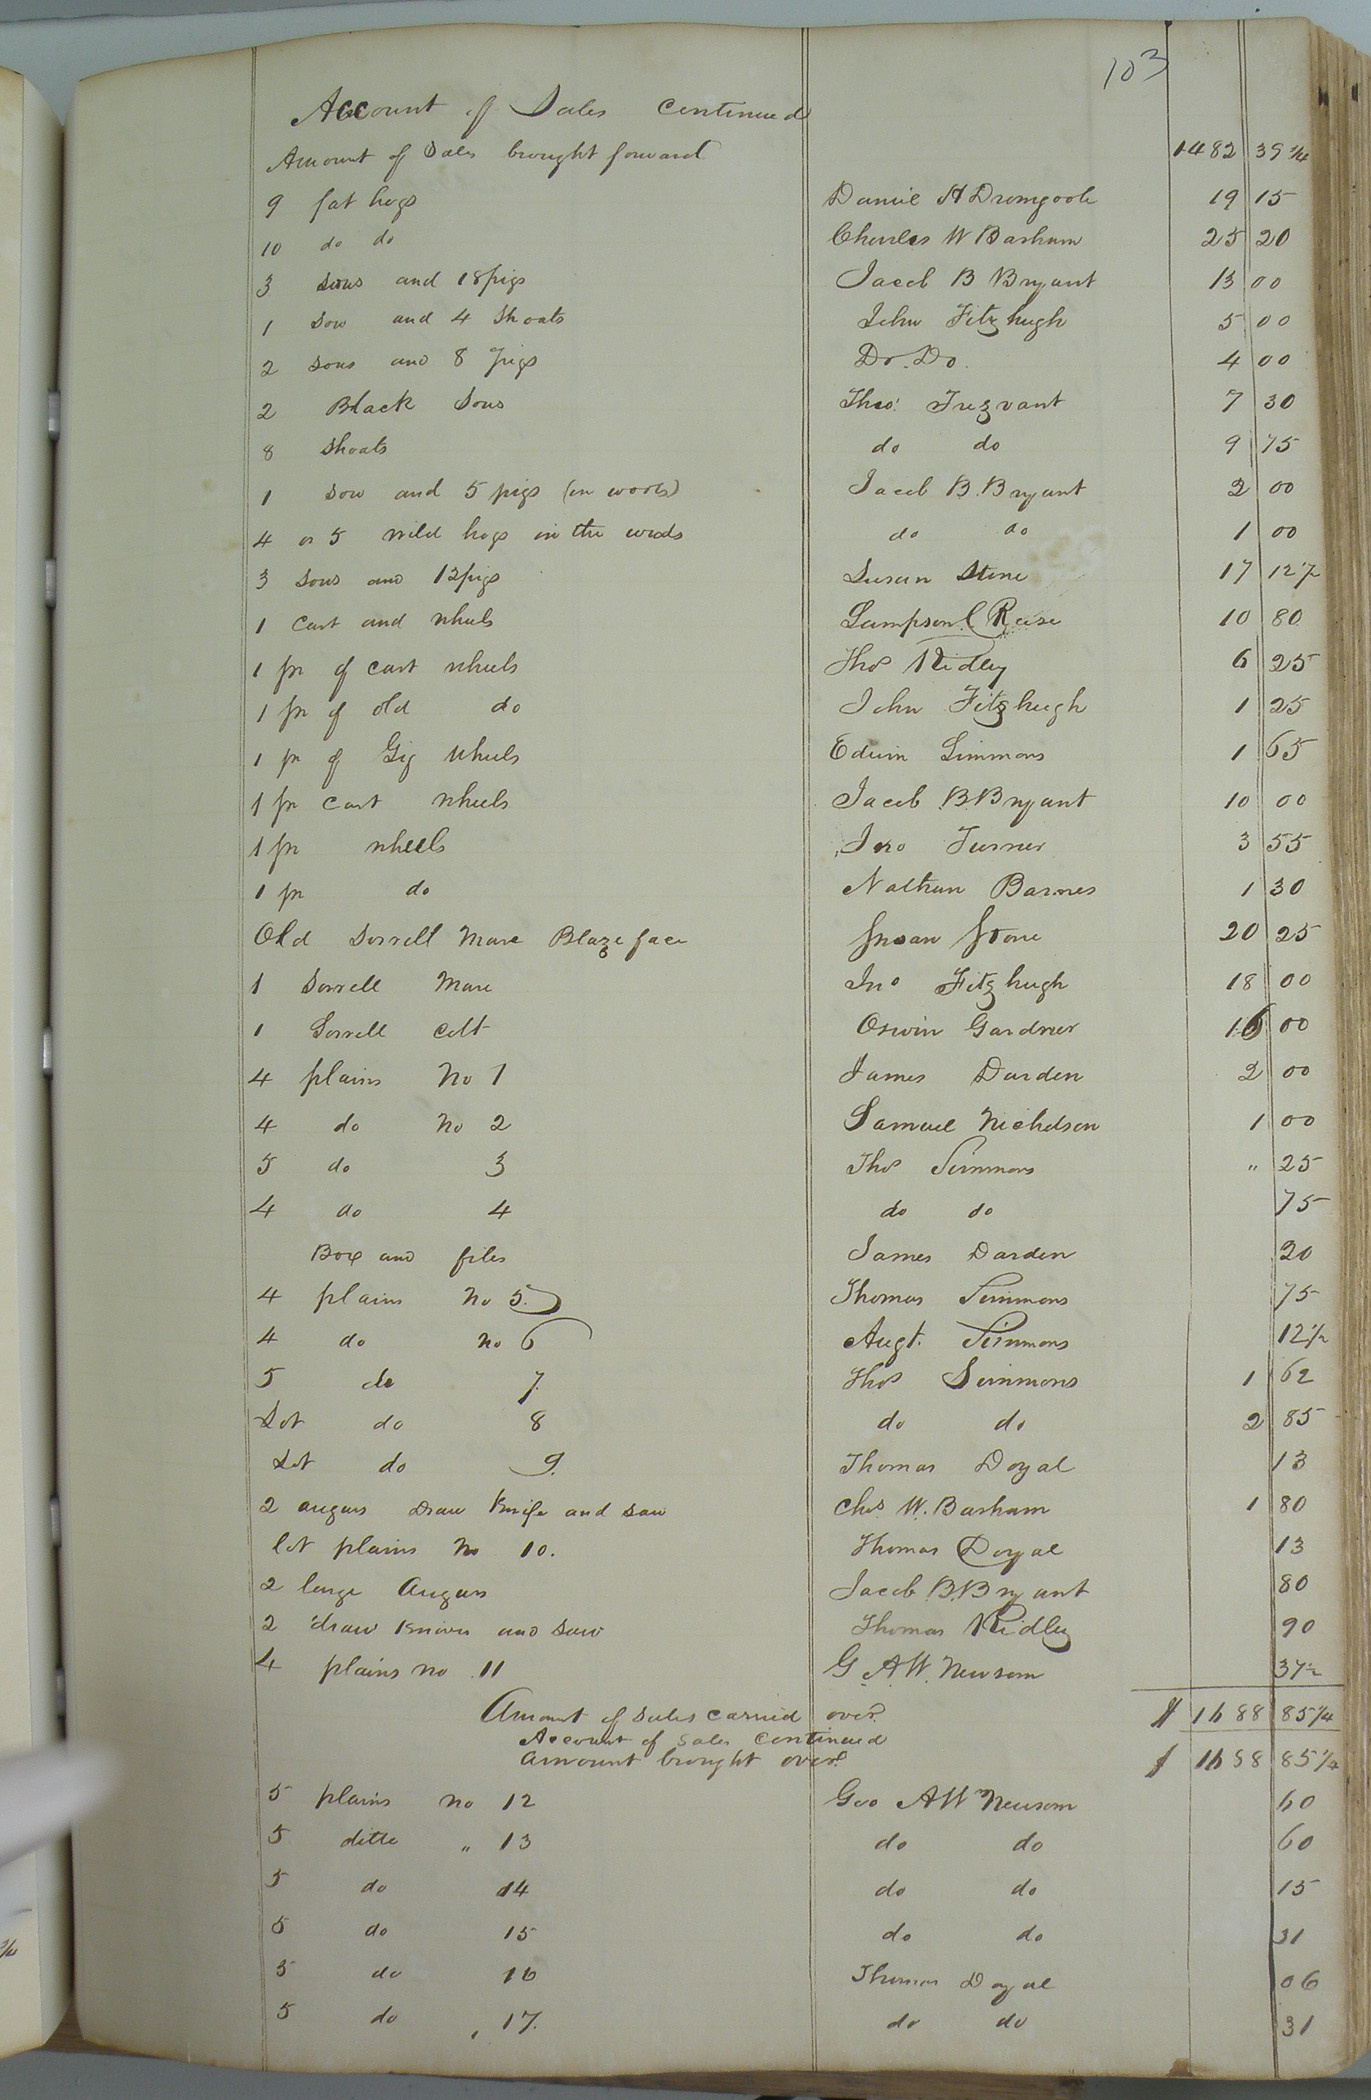 103
Account of Sales Continued
Amount of Sales brought forward 1482 39 3/4
9 fat hogs Daniel H Dromgoole 19 15
10 do do Charles W Barham 25 20
3 Sows and 18 pigs Jacob B Bryant 13 00
1 Sow and 4 Shoats John Fitzhugh 5 00
2 Sows and 8 pigs Do. Do. 4 00
2 Black Sows Theo: Trezvant 7 30
8 Shoats do do 9 75
1 Sow and 5 pigs (in woods) Jacob B. Bryant 2 00
4 or 5 wild hogs in the woods do do 1 00
3 Sows and 12 pigs Susan Stone 17 12 1/2
1 Cart and wheels Sampson C Reese 10 80
1 pr of cart wheels Thos Ridley 6 25
1 pr of old do John Fitzhugh 1 25
1 pr of Gig wheels Edwin Simmons 1 65
1 pr Cart wheels Jacob B. Bryant 10 00
1 pr wheels Jno Turner 3 55
1 pr do Nathan Barnes 1 30
Old Sorrell Mare Blaze face Susan Stone 20 25
1 Sorrell Mare Jno Fitzhugh 18 00
1 Sorrell Colt Orwin Gardner 16 00
4 plains No 1 James Darden 2 00
4 do No 2 Samuel Nicholson 1 00
5 do 3 Thos Simmons " 25
4 do 4 do do 75
Box and files James Darden 20
4 plains No 5. Thomas Simmons 75
4 do No 6 Augt. Simmons 12 1/2
5 do 7. Thos Simmons 1 62
Lot do 8 do do 2 85
Lot do 9. Thomas Doyal 13
2 augurs Draw Knife and Saw Chs W. Barham 1 80
lot plains No 10. Thomas Doyal 13
2 large Augurs Jacob B. Bryant 80
2 draw Knives and Saw Thomas Ridley 90
4 plains no 11 G. A. W. Newsom 37 1/2
Amount of Sales carried over. $ 1688 85 1/4
Account of Sales Continued
Amount brought over. $ 1688 85 1/4
5 plains no 12 Geo A W Newsom 60
5 ditto " 13 do do 60
5 do 14 do do 15
5 do 15 do do 31
5 do 16 Thomas Doyal 06
5 do 17. do do 31